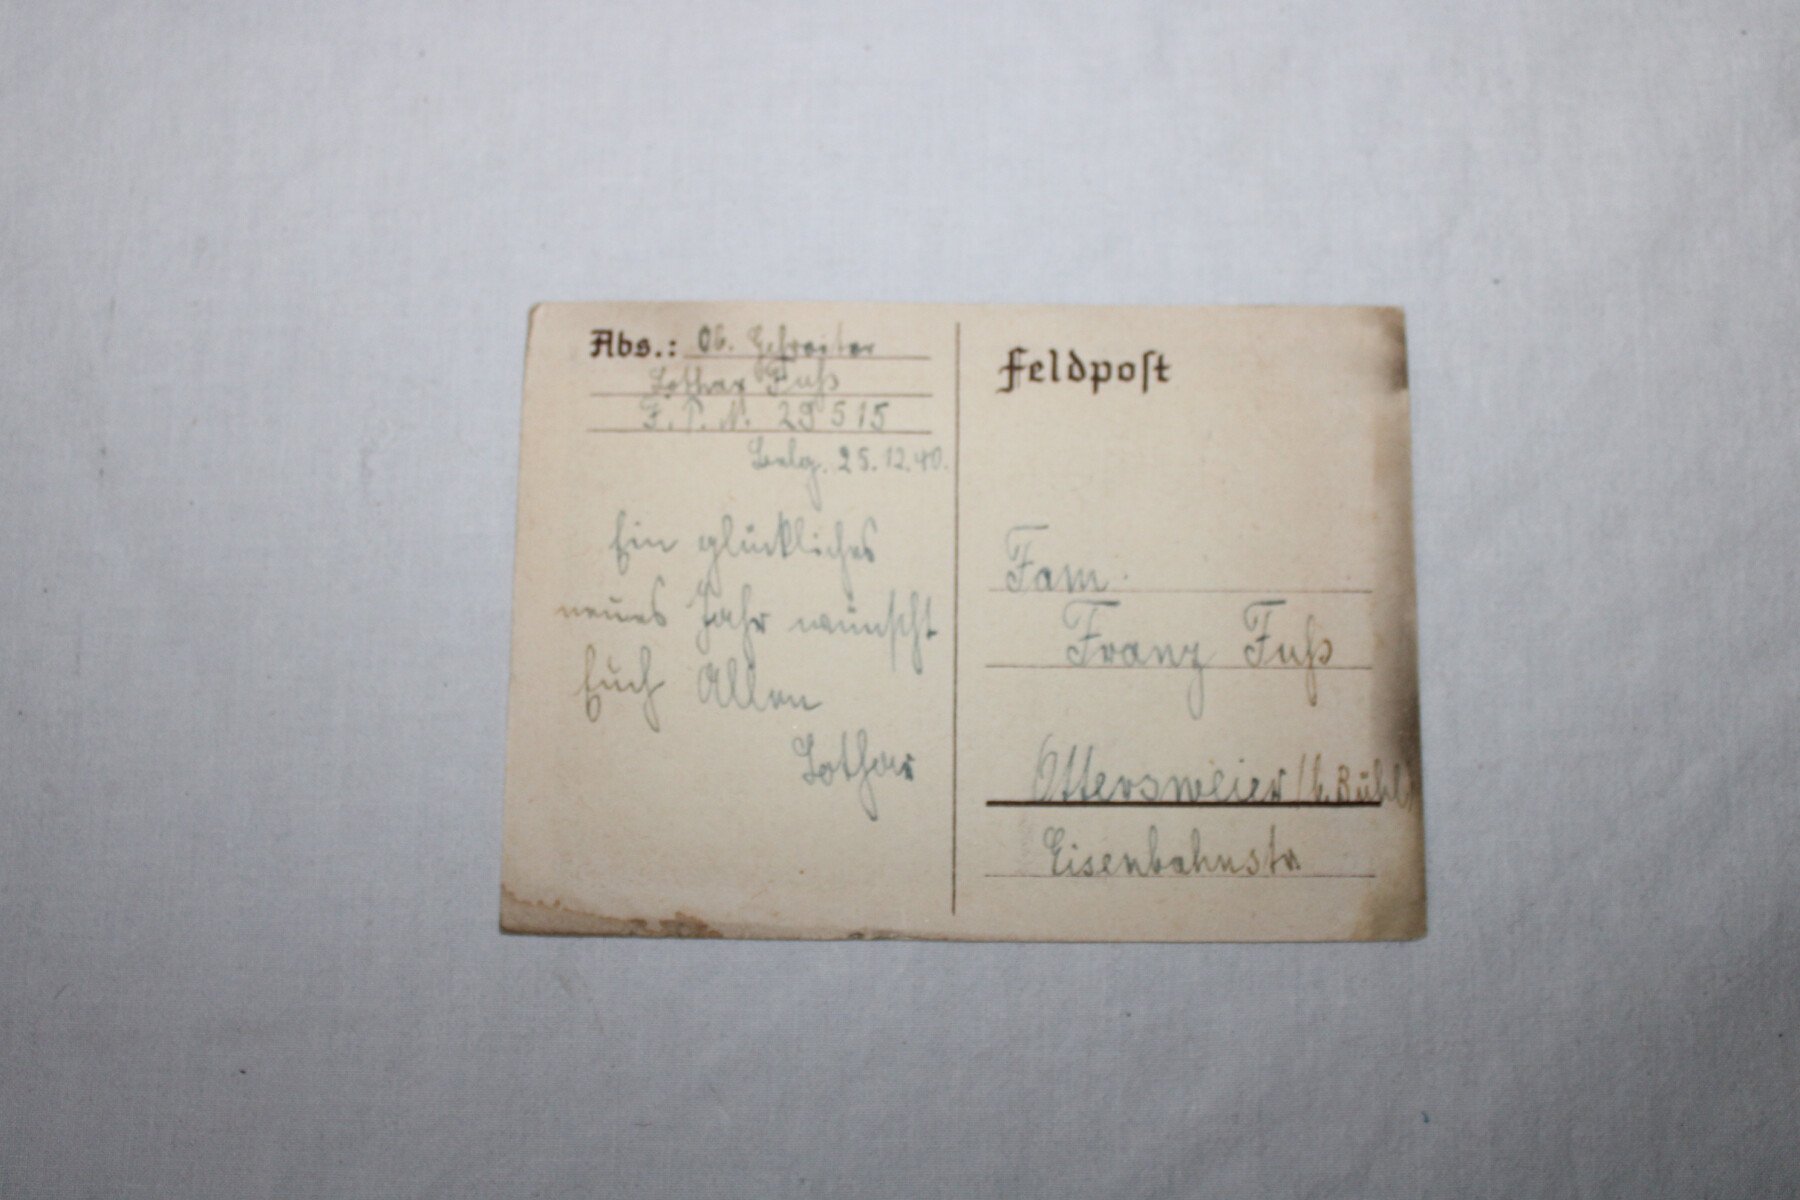 Abs.: Ob. Gefreiter
Lothar Fuß
F.P.N. 29515
Belg. 25.12.40.
Ein glückliches
neues Jahr wünscht
Euch Allen
Lothar
Feldpost
Fam.
Franz Fuß
Ottersweier / b. Bühl
Eisenbahnstr.